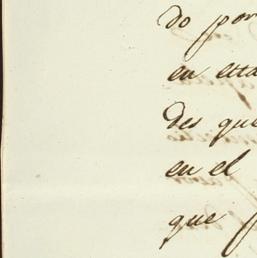 do por
en esta
des que
en el
que